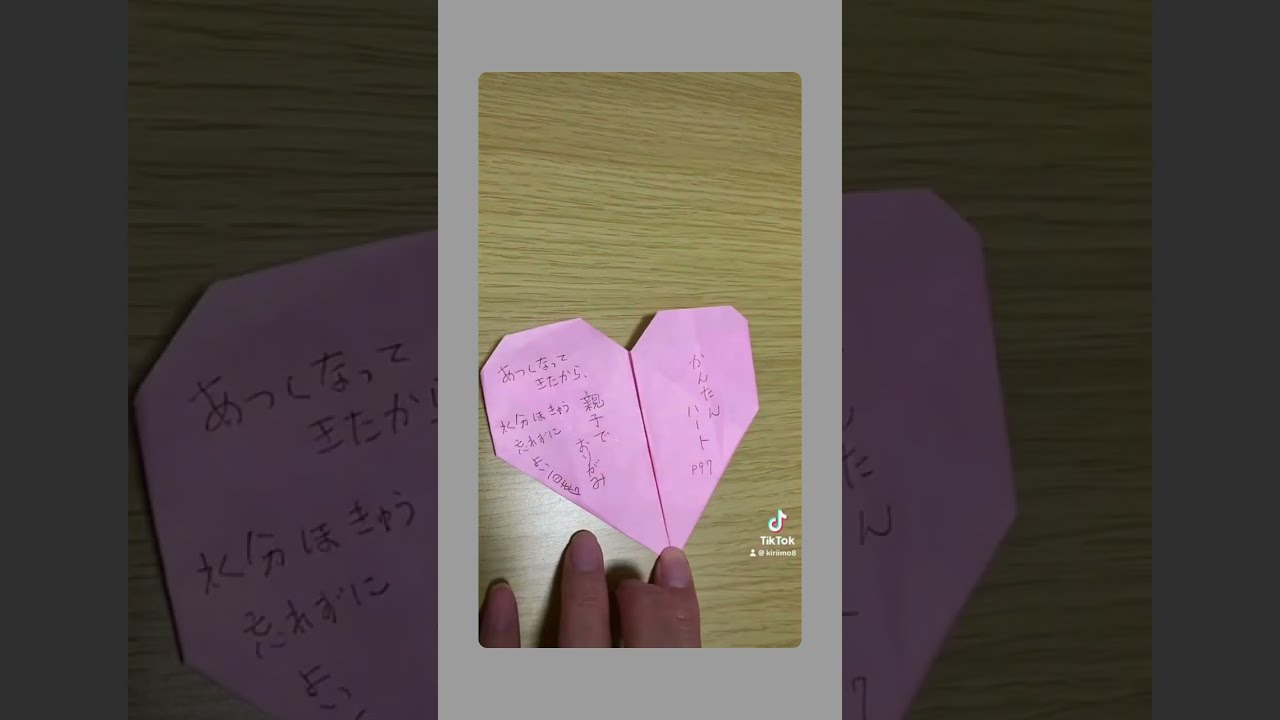 あつくなって
きたから、
水分ほきゅう
忘れずに
親子で
おりがみ
かんたん
ハート
P97
TikTok
@kiriimo8